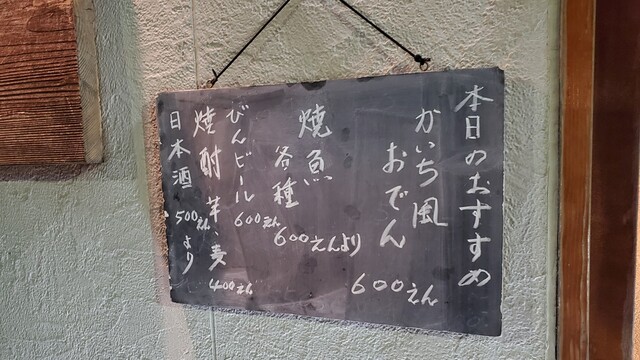 本日のおすすめ
かいち風
おでん
600えん
焼魚
各種
600えんより
びんビール
600えん
焼酎 芋、麦
400えん
日本酒
500えんより